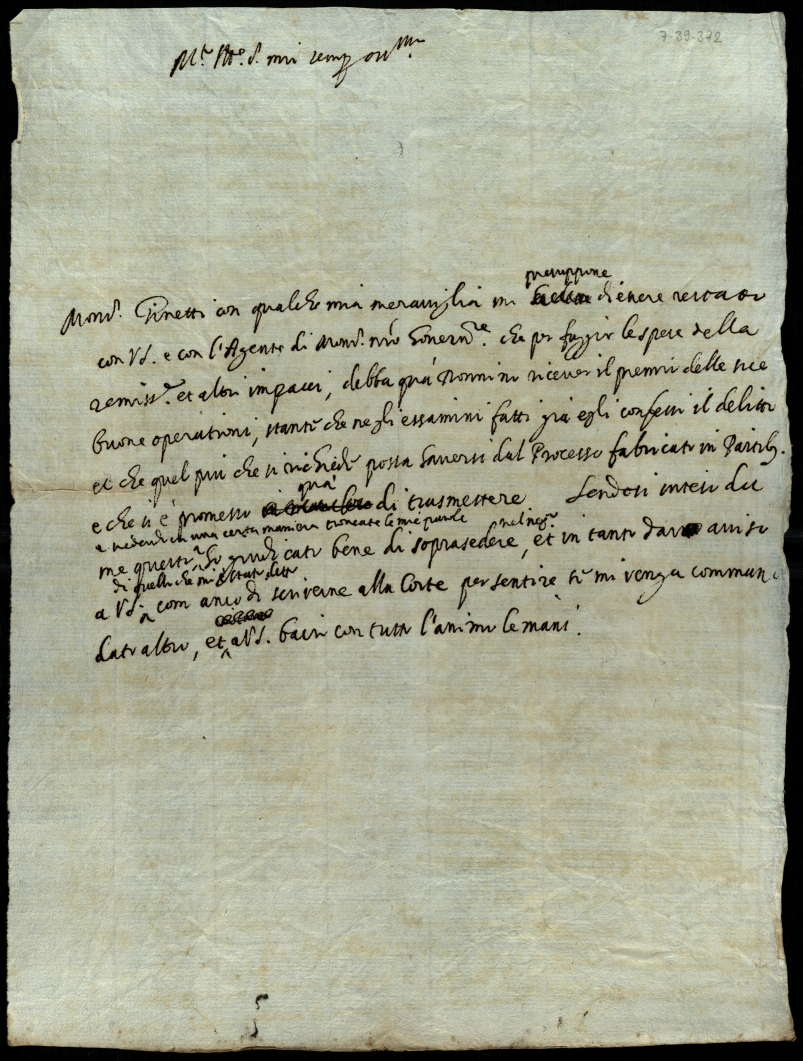 7-39-372
M.to Ill.re S.r mio semp oss.mo
presuppone
Mons.r Ginetti con qualche mia meraviglia mi di essere restato
con VS. e con l'Agente di Mons.r n'ro Govern.re che per fuggir le spese della
remiss.ne et altri impacci, debba quà Nonnino ricever il premio delle sue
buone operationi, stante che negli essamini fatti già egli confessi il delitto
et che quel più che si richiede possa haversi dal Processo fabricato in
quà
e che si è promesso di trasmettere Sendosi inteso da
e vedendo in una certa maniera troncate le mie parole nel neg.o
me questo ho giudicato bene di soprasedere, et in tanto dar aviso
di quello che mi è stato detto
a VS. com anco di scriverne alla Corte per sentire se mi venga comman
dato altro, et a VS. bacio con tutto l'animo le mani.